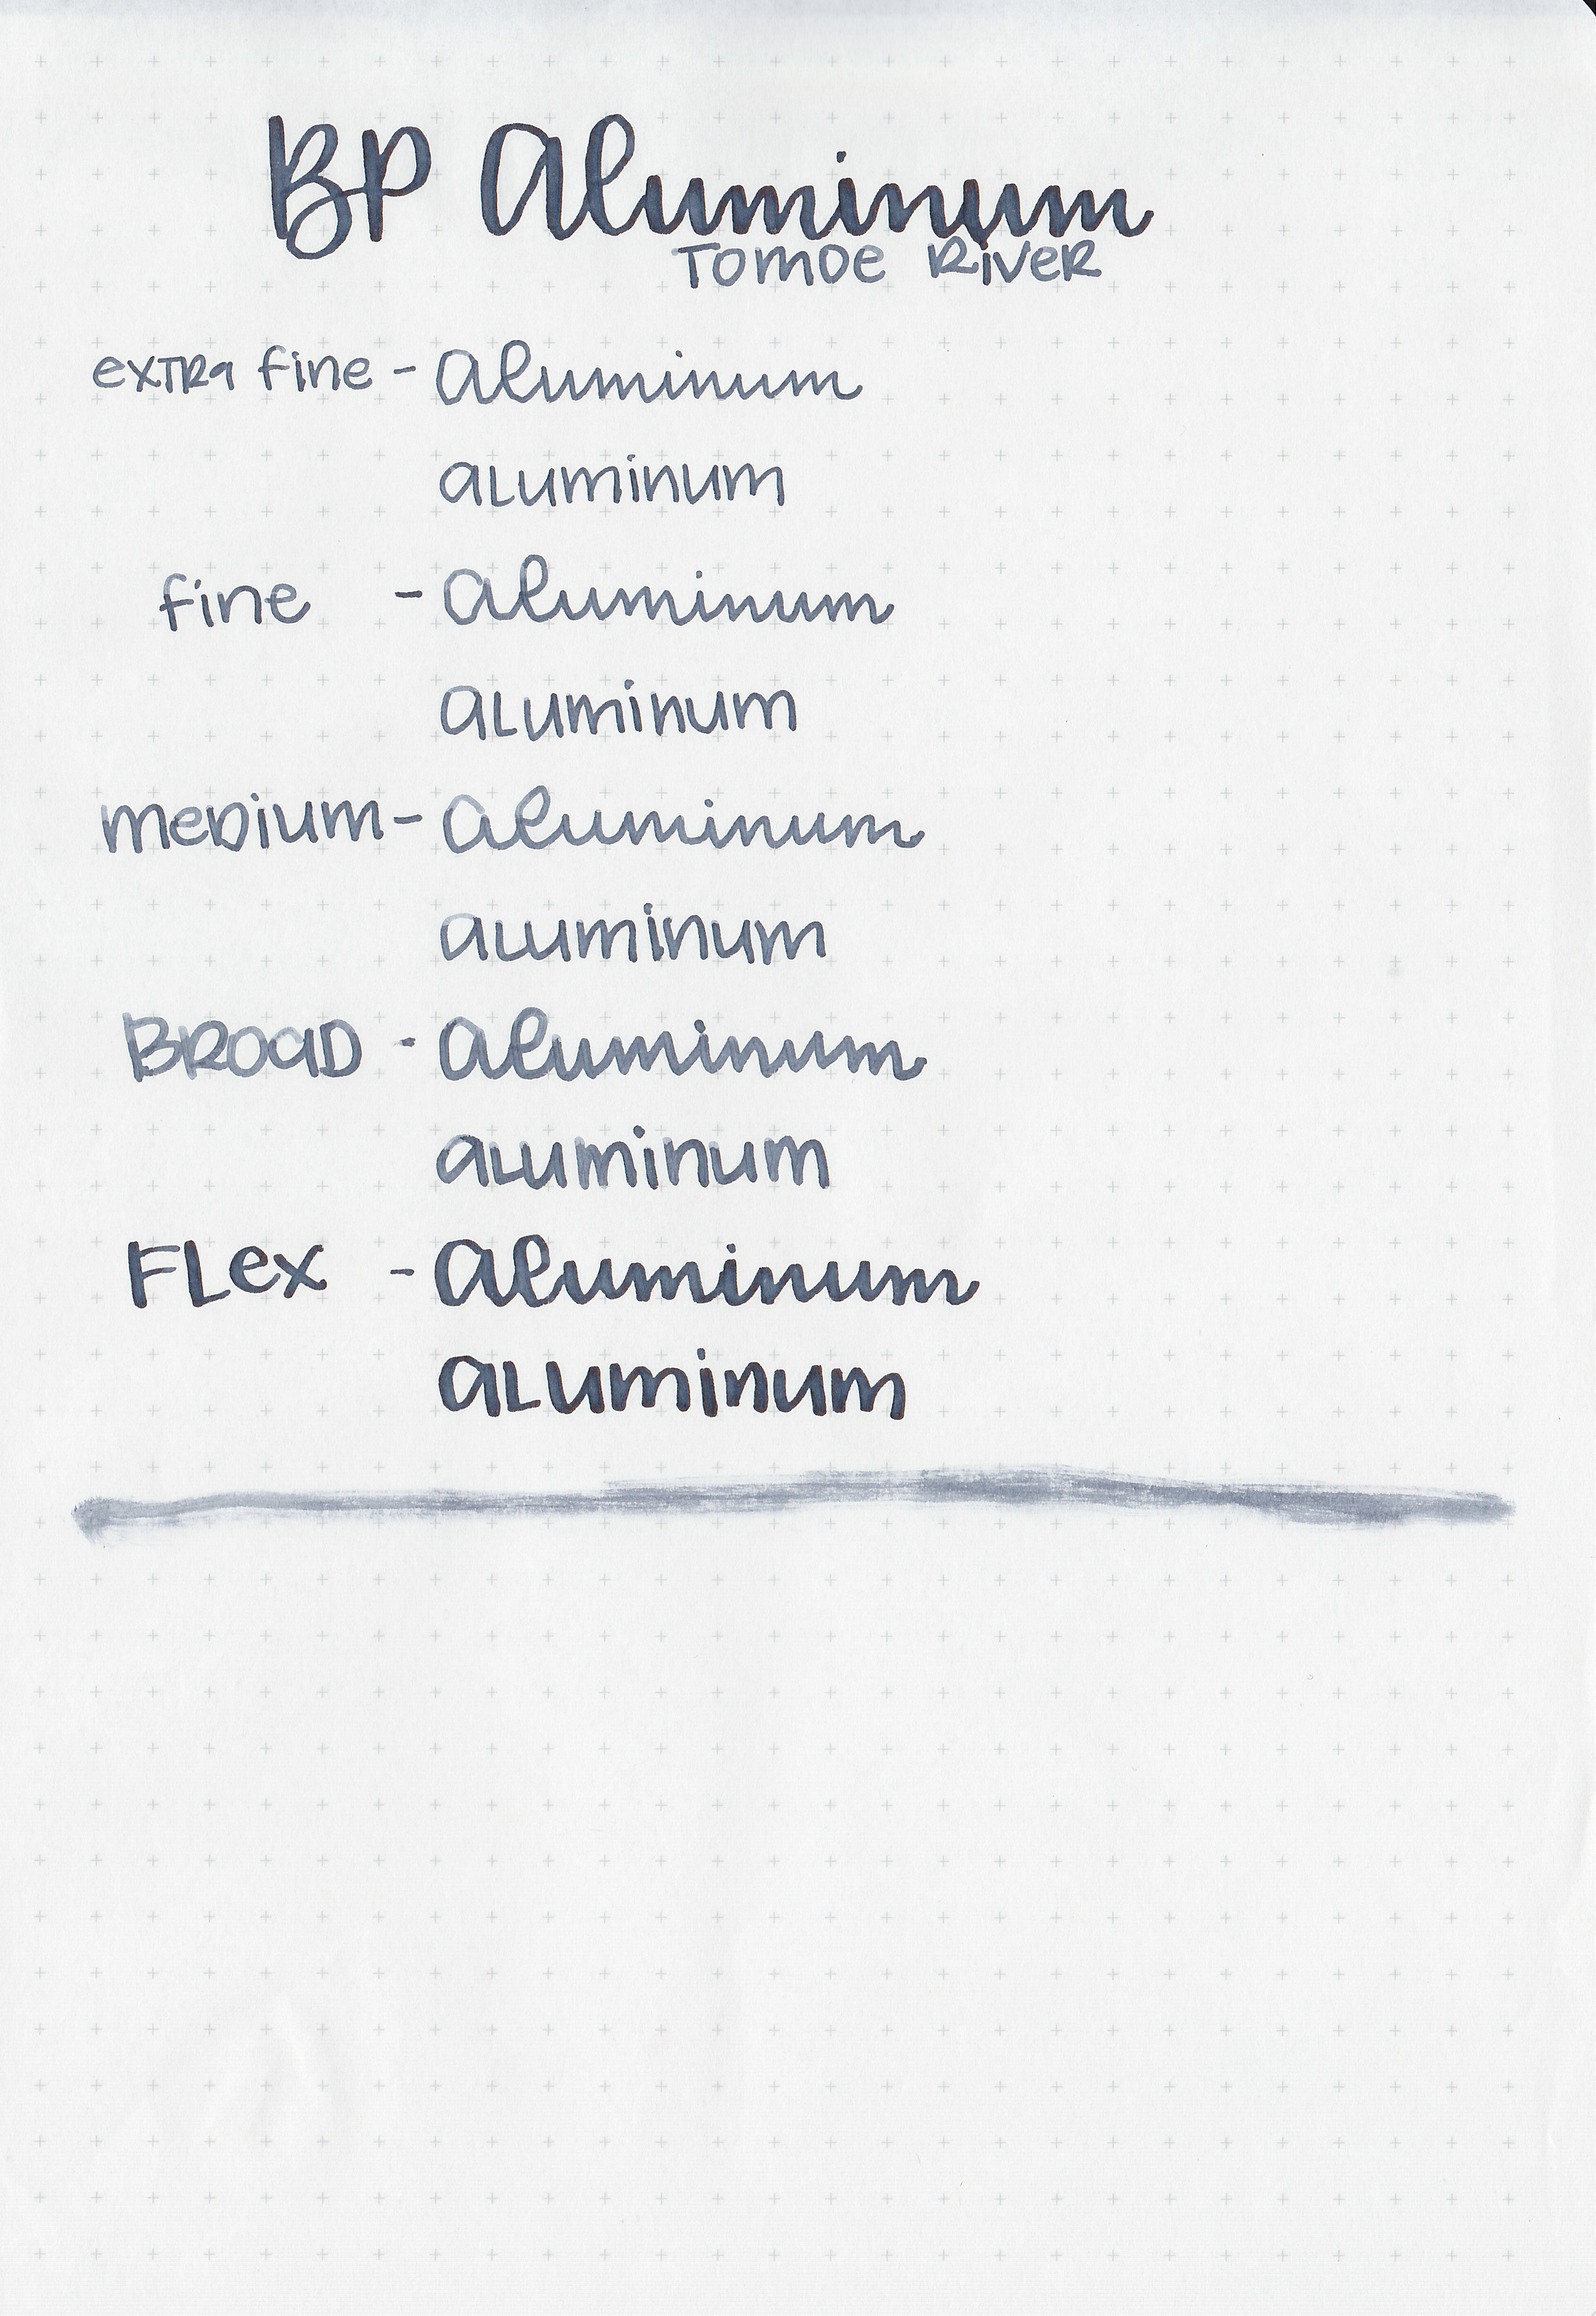 BP Aluminum
Tomoe River
extra fine - Aluminum
aluminum
fine - Aluminum
aluminum
medium - Aluminum
aluminum
Broad - Aluminum
aluminum
Flex - Aluminum
aluminum